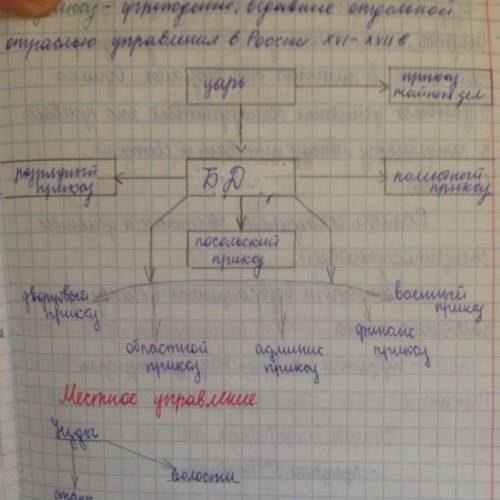 приказ - учреждение, ведавшее отдельной
отраслью управления в России XVI-XVII в.
царь
приказ
тайных дел
разрядный
приказ
Б Д
поместный
приказ
посольский
приказ
дворцовый
приказ
военный
приказ
областной
приказ
админис
приказ
финанс
приказ
Местное управление.
Уезды
волости